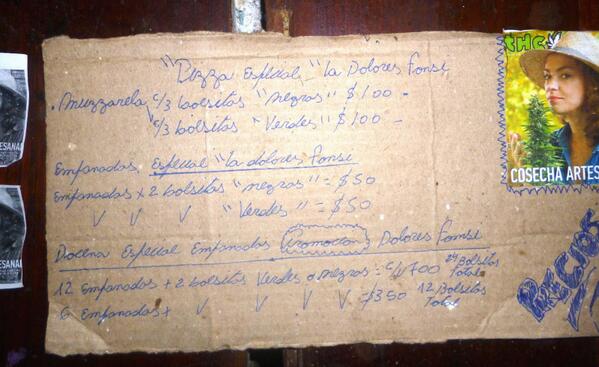 "Pizza Especial "la Dolores Fonsi
. Muzzarela c/3 bolsitas "negras" $100 -
c/3 bolsitas "Verdes" $100 -
Empanadas Especial "la dolores fonsi
Empanadas x 2 bolsitas "negras" = $50
"Verdes" = $50
Docena Especial Empanadas Promocion Dolores Fonsi
12 Empanadas + 2 bolsitas Verdes o negras = c/u 700 24 Bolsitas Total
6 Empanadas + = $350 12 Bolsitas Total
PRECIOS
THC
COSECHA ARTES
ESANAL